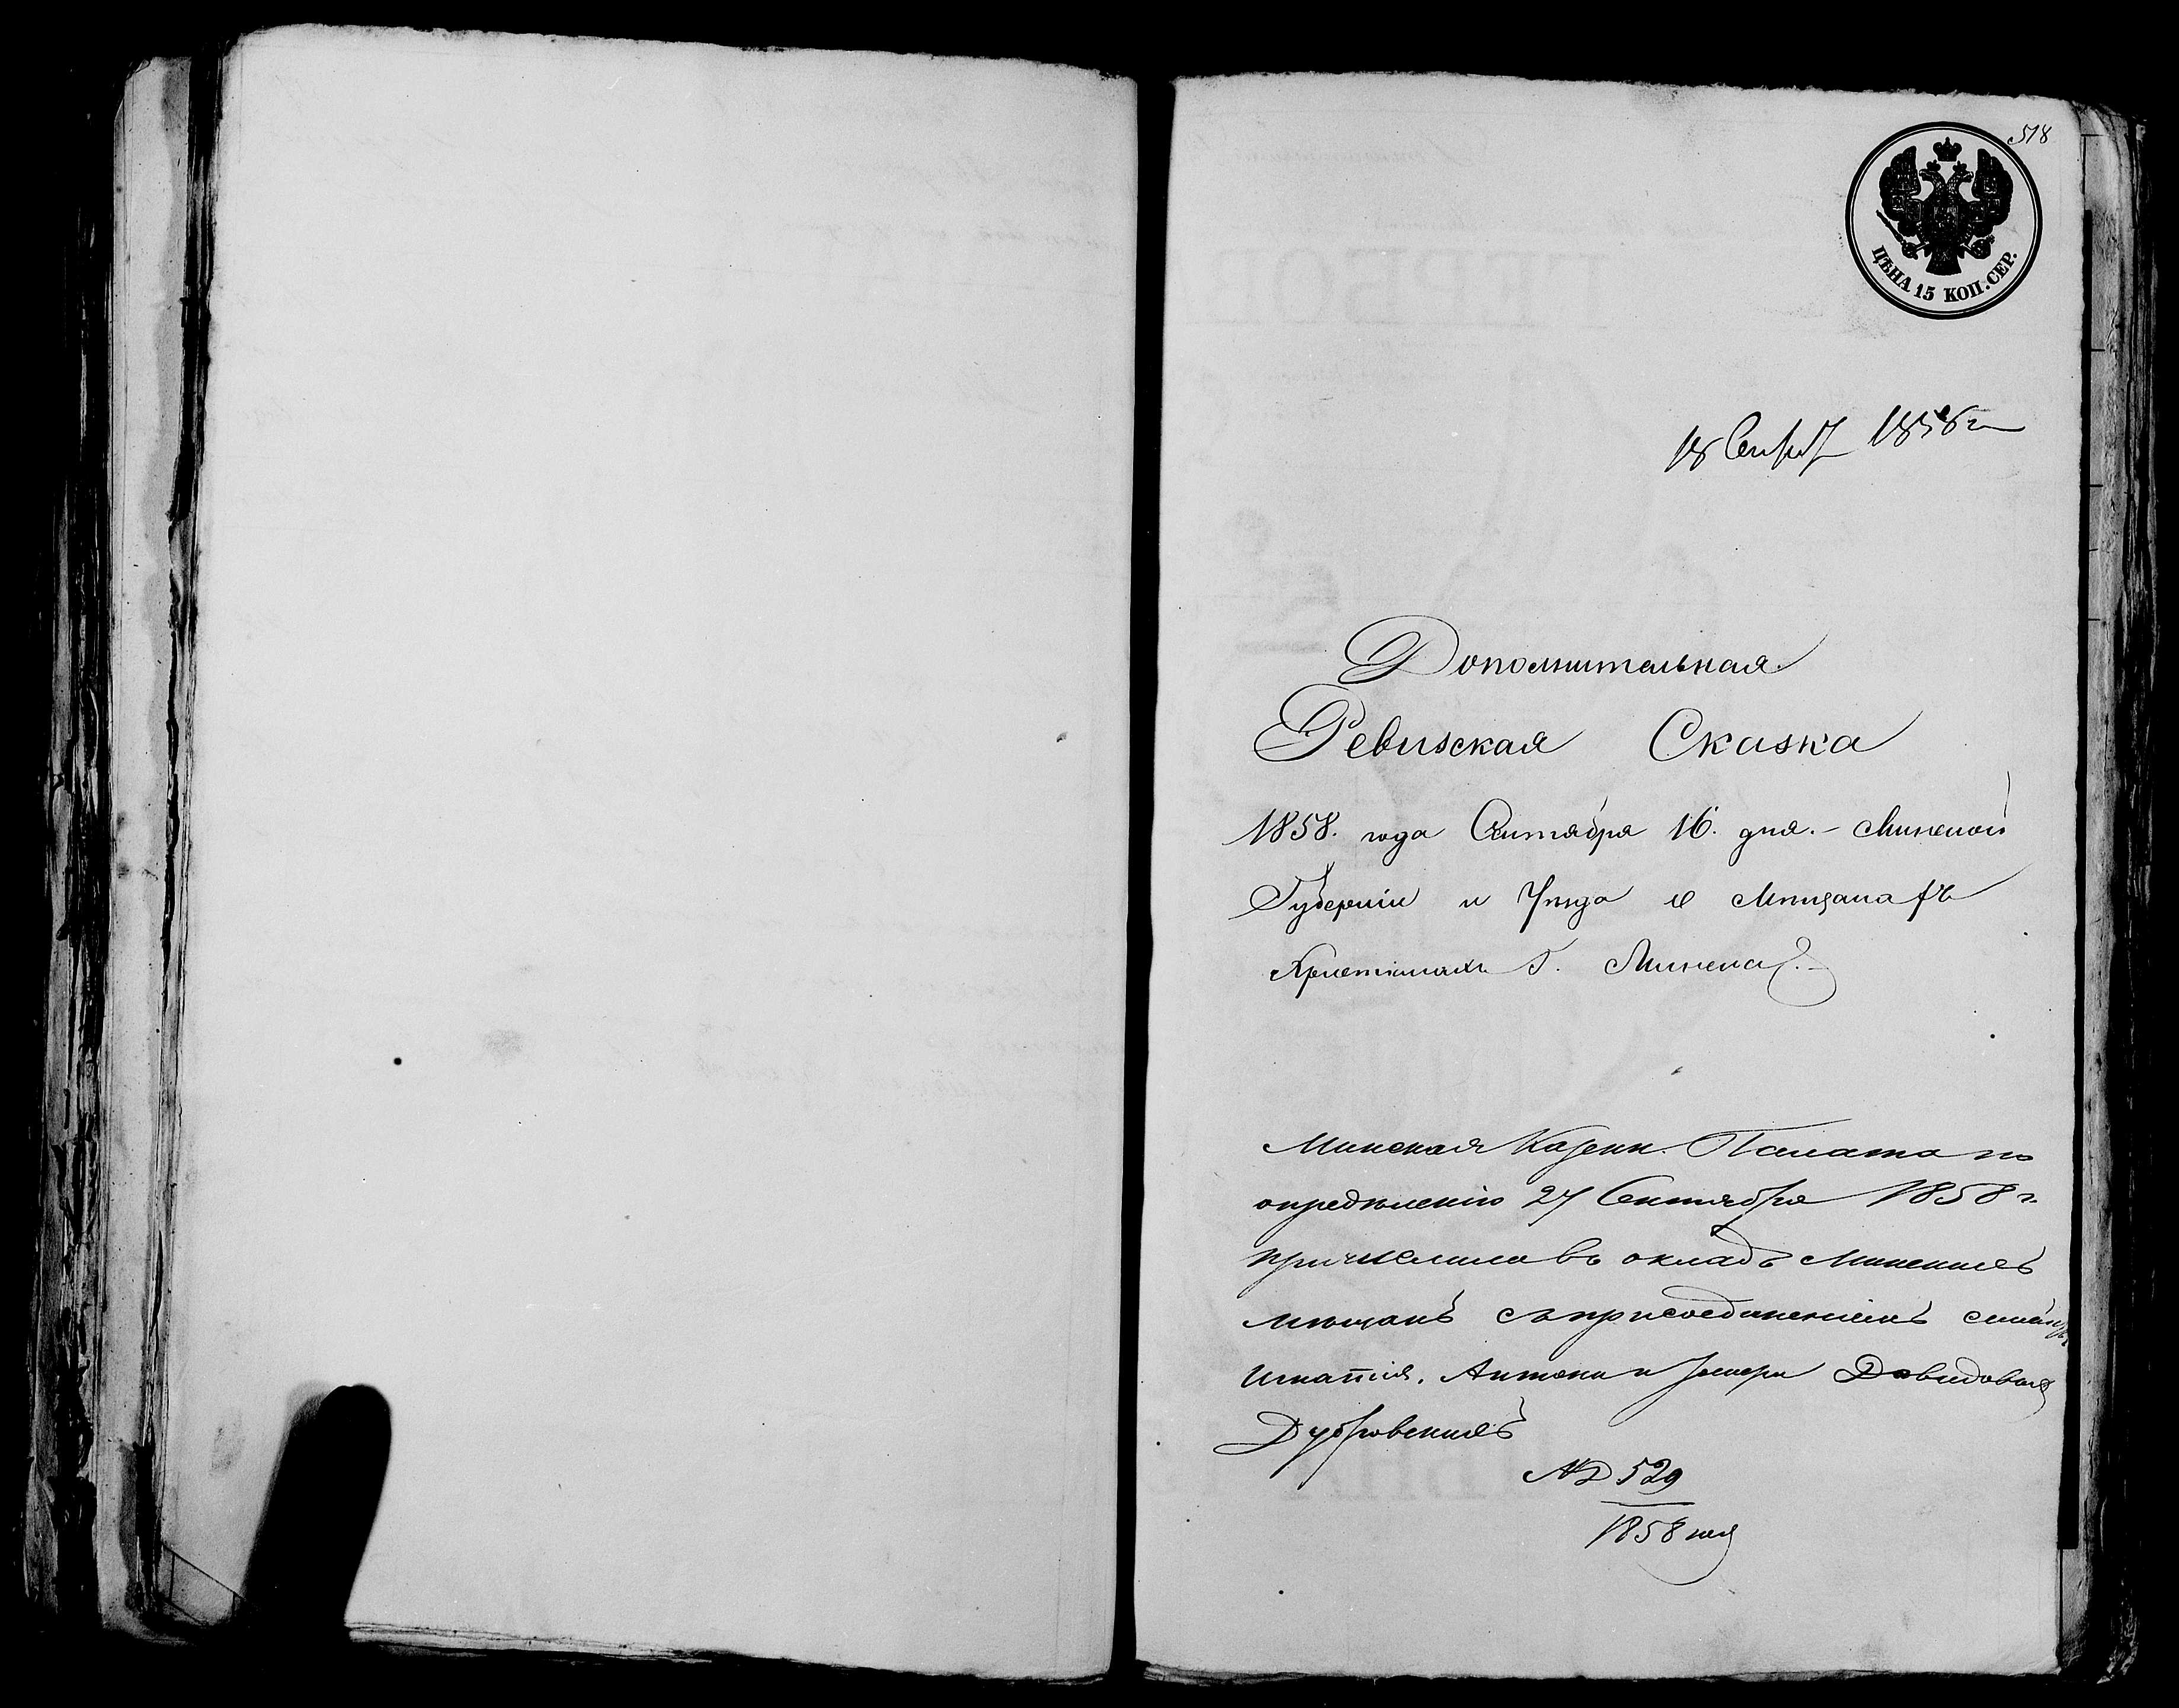 518
ЦѢНА 15 КОП. СЕР.
18 Сент 1858 г
Дополнительная
Ревизская Сказка
1858. года Сентября 16. дня. - Минской
Губерніи и Уѣзда о Мѣщанахъ
Христіанахъ Г. Минска.
Минская Казен. Палата по
опредѣленію 27 Сентября 1858 г.
причислила въ окладъ Минскихъ
мѣщанъ съ присоединеніемъ
Игнатія, Антона и Давидовыхъ
Дубровскихъ
№ 529
1858 года